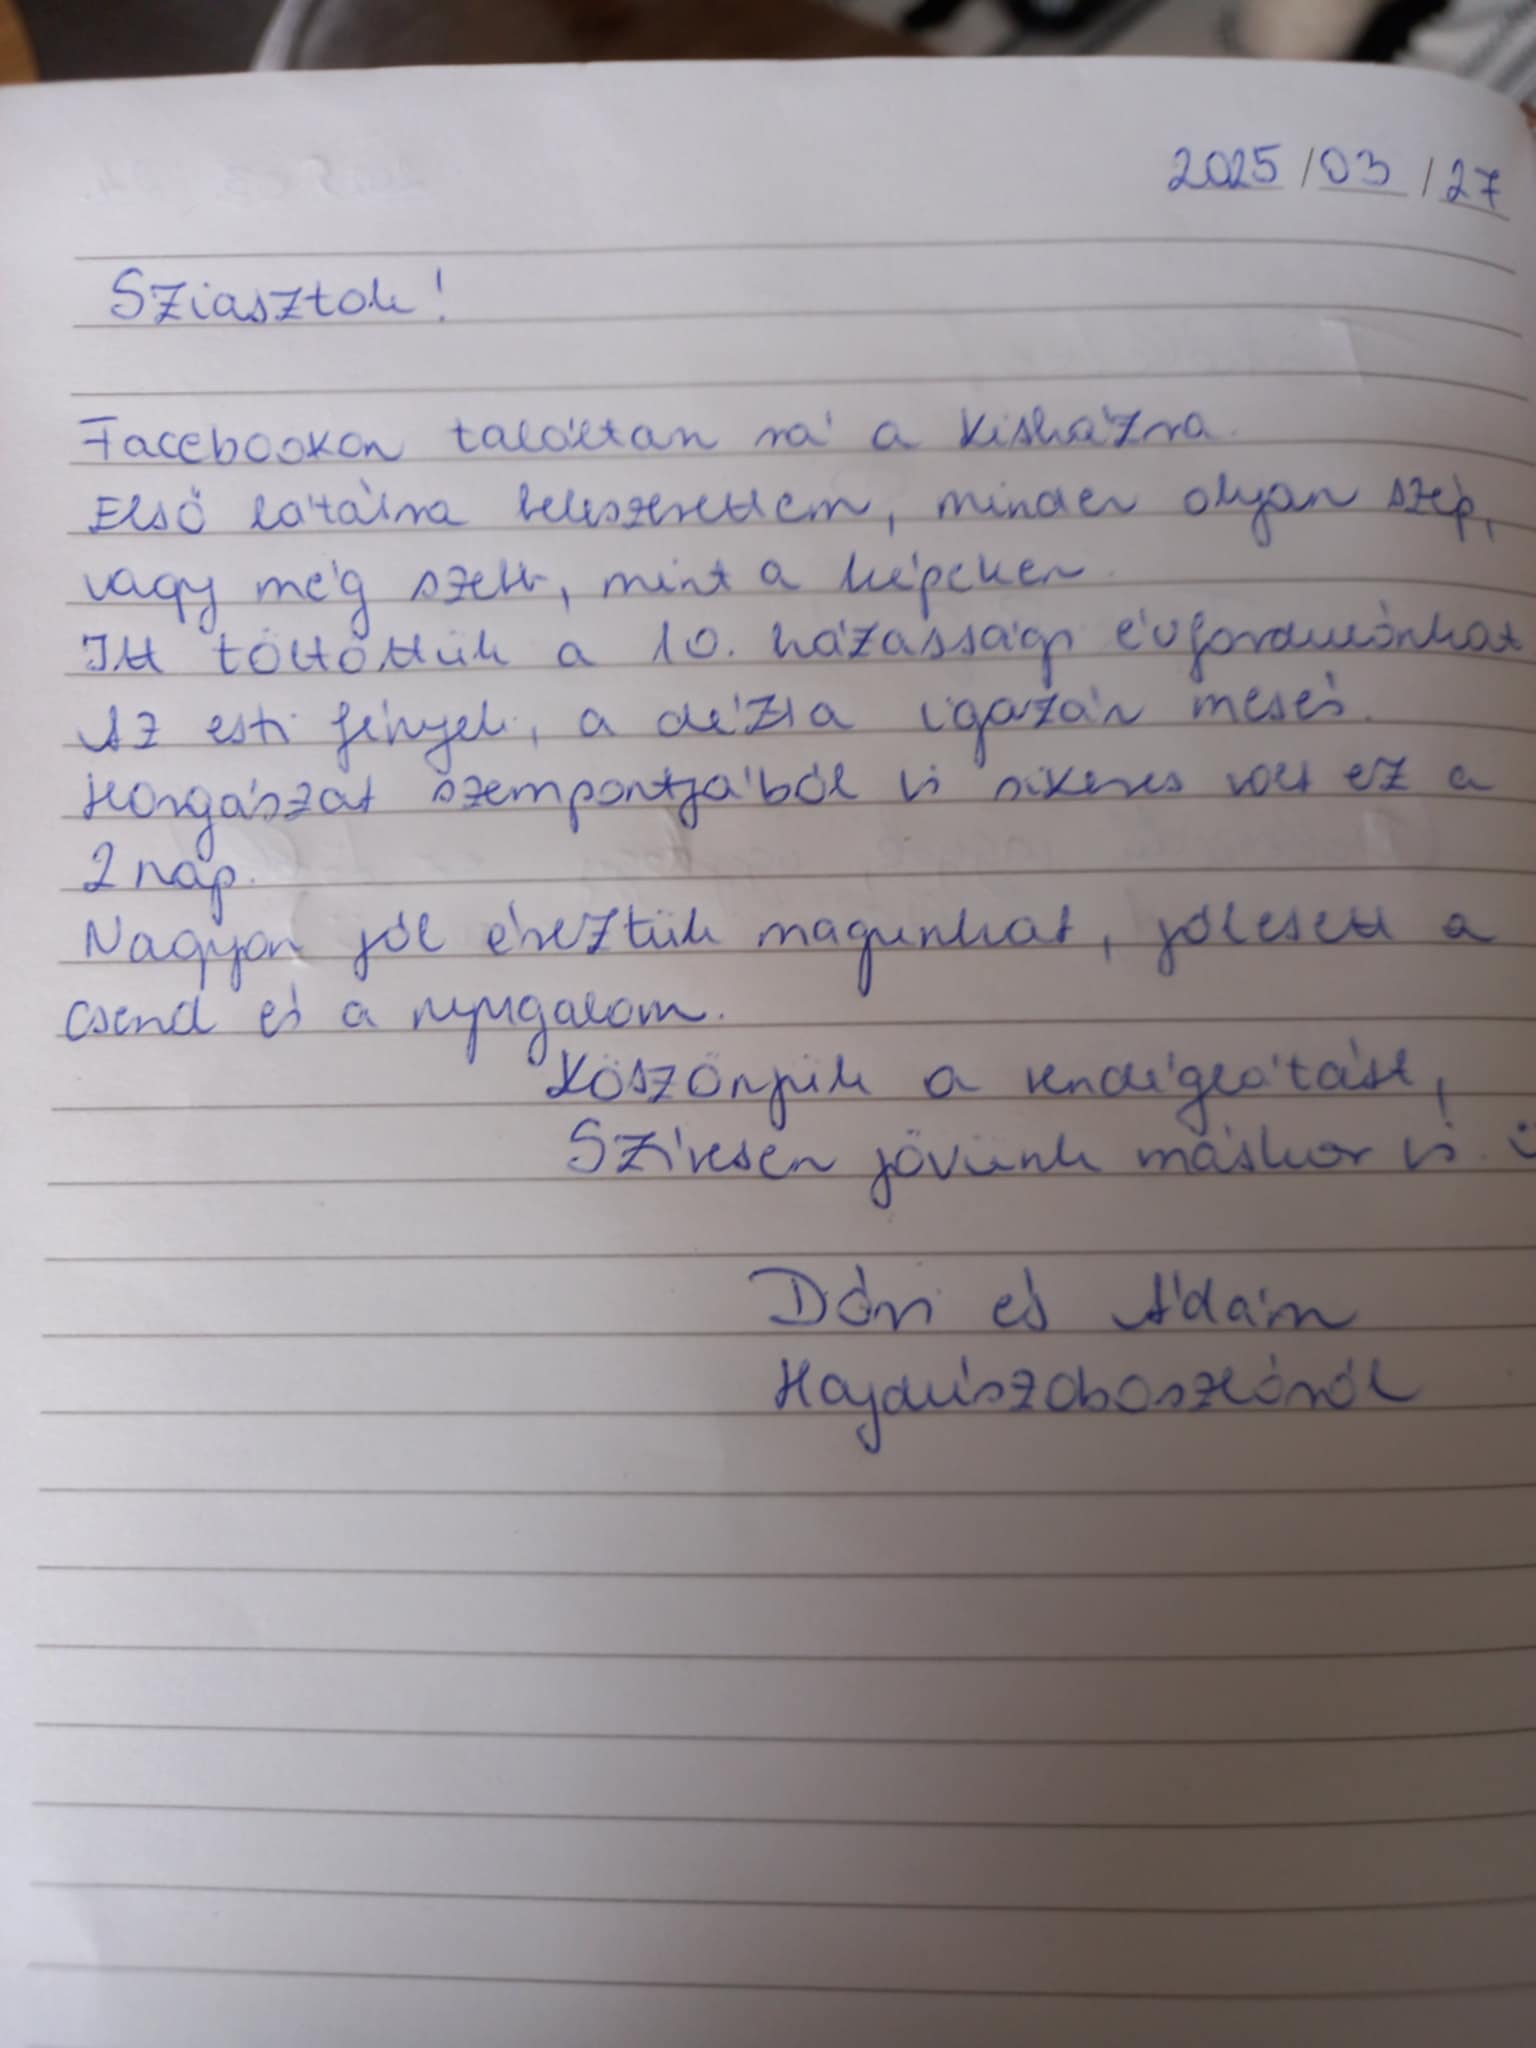 2025/03/27
Sziasztok!
Facebookon találtam rá a kisházra.
Első látásra beleszerettem, minden olyan szép,
vagy még szebb, mint a képeken.
Itt töltöttük a 10. házassági évfordulónkat
Az esti fények, a dézsa igazán mesés.
Horgászat szempontjából is sikeres volt ez a
2 nap.
Nagyon jól éreztük magunkat, jólesett a
csend és a nyugalom.
Köszönjük a vendéglátást,
Szívesen jövünk máskor is. :)
Dóri és Ádám
Hajdúszoboszlóról